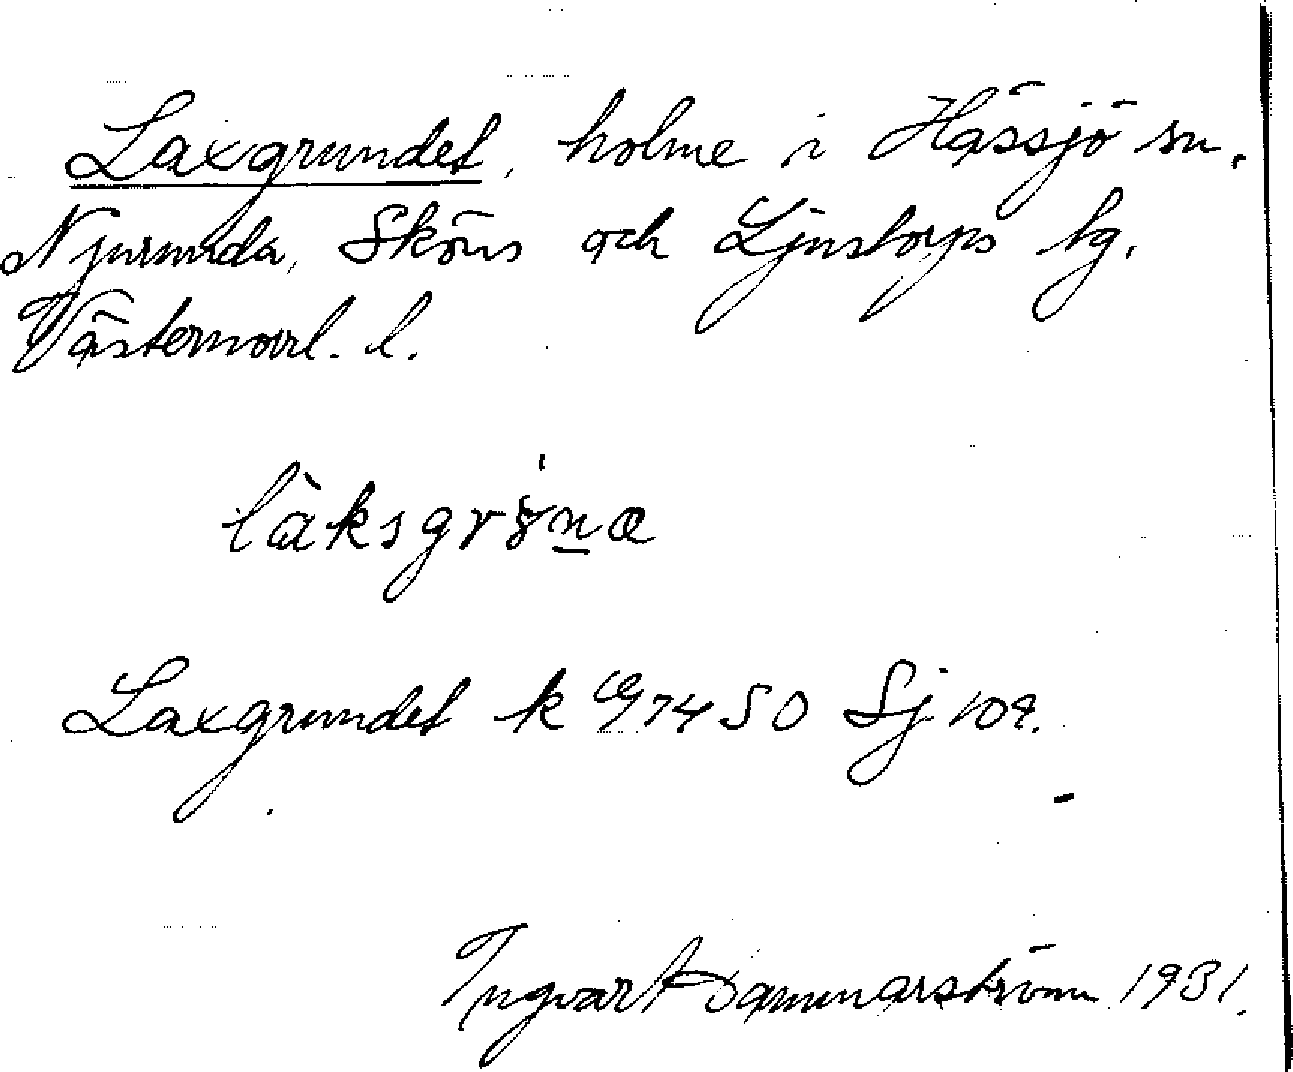 Laxgrundet, holme i Hässjö sn.
Njurunda, Sköns och Ljustorps tg.
Västernorrl. l.
làksgrⱥ̀na
Laxgrundet k 74 SO Sj 109.
Ingvart Dammarström 1931.